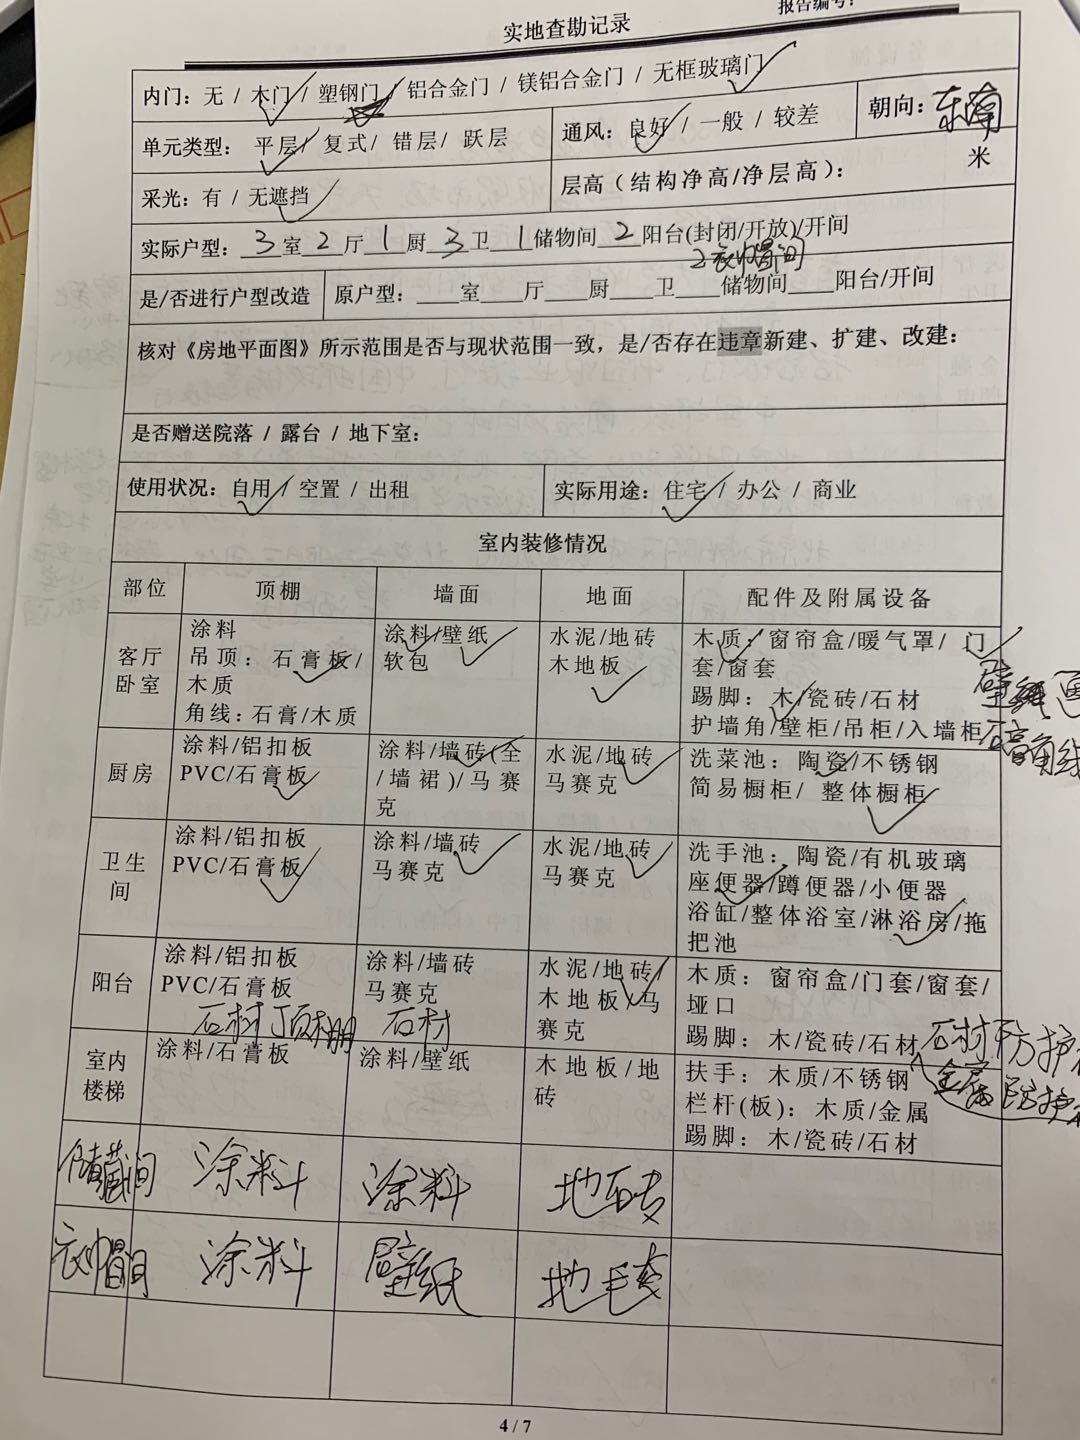 报告编号：
实地查勘记录
内门：无 / 木门 / 塑钢门 / 铝合金门 / 镁铝合金门 / 无框玻璃门
单元类型： 平层 / 复式/ 错层 / 跃层
通风：良好 / 一般 / 较差
朝向：东南
采光：有 / 无遮挡
层高（结构净高/净层高）：
米
实际户型：3室2厅1厨3卫1储物间2阳台(封闭/开放)/开间
2衣帽间
是/否进行户型改造
原户型：____室____厅____厨____卫____储物间____阳台/开间
核对《房地平面图》所示范围是否与现状范围一致，是/否存在违章新建、扩建、改建：
是否赠送院落 / 露台 / 地下室：
使用状况：自用 / 空置 / 出租
实际用途：住宅 / 办公 / 商业
室内装修情况
部位
顶棚
墙面
地面
配件及附属设备
客厅
卧室
涂料
吊顶：石膏板/
木质
角线：石膏/木质
涂料/壁纸
软包
水泥/地砖
木地板
木质：窗帘盒/暖气罩/ 门
套/窗套
踢脚：木/瓷砖/石材
护墙角/壁柜/吊柜/入墙柜
石膏角线
厨房
涂料/铝扣板
PVC/石膏板
涂料/墙砖(全
/墙裙)/马赛
克
水泥/地砖
马赛克
洗菜池：陶瓷/不锈钢
简易橱柜/ 整体橱柜
卫生
间
涂料/铝扣板
PVC/石膏板
涂料/墙砖
马赛克
水泥/地砖
马赛克
洗手池：陶瓷/有机玻璃
座便器/蹲便器/小便器
浴缸/整体浴室/淋浴房/拖
把池
阳台
涂料/铝扣板
PVC/石膏板
石材顶棚
涂料/墙砖
马赛克
石材
水泥/地砖/
木地板/马
赛克
木质：窗帘盒/门套/窗套/
垭口
踢脚：木/瓷砖/石材
室内
楼梯
涂料/石膏板
涂料/壁纸
木地板/地
砖
扶手：木质/不锈钢
栏杆(板)：木质/金属
踢脚：木/瓷砖/石材
金属防护
储藏间
涂料
涂料
地砖
衣帽间
涂料
壁纸
地毛毯
4 / 7